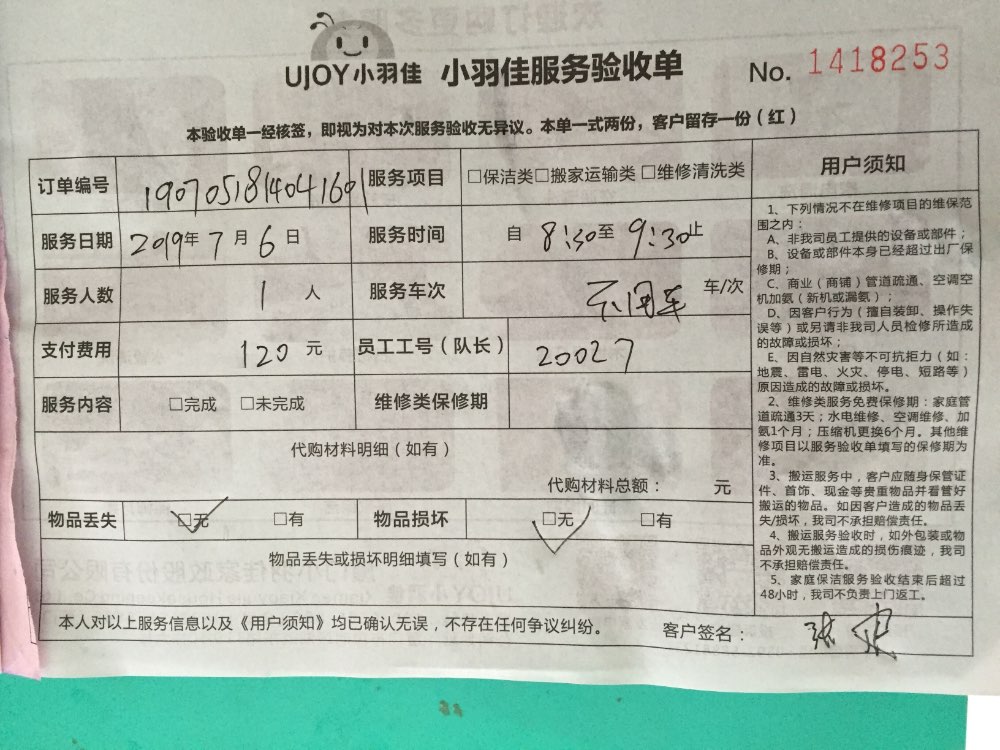 UJOY小羽佳 小羽佳服务验收单 No. 1418253
本验收单一经核签，即视为对本次服务验收无异议。本单一式两份，客户留存一份（红）
订单编号 190705181404169 服务项目 □保洁类□搬家运输类 □维修清洗类
服务日期 2019年 7 月 6 日 服务时间 自 8:30至 9:30止
服务人数 1 人 服务车次 不用车 车/次
支付费用 120 元 员工工号（队长） 20027
服务内容 □完成 □未完成 维修类保修期
代购材料明细（如有）
代购材料总额： 元
物品丢失 □无 □有 物品损坏 □无 □有
物品丢失或损坏明细填写（如有）
本人对以上服务信息以及《用户须知》均已确认无误，不存在任何争议纠纷。 客户签名：
用户须知
1、下列情况不在维修项目的维保范
围之内：
A、非我司员工提供的设备或部件；
B、设备或部件本身已经超过出厂保
修期；
C、商业（商铺）管道疏通、空调空
机加氨（新机或漏氨）；
D、因客户行为（擅自装卸、操作失
误等）或另请非我司人员检修所造成
的故障或损坏；
E、因自然灾害等不可抗拒力（如：
地震、雷电、火灾、停电、短路等）
原因造成的故障或损坏。
2、维修类服务免费保修期：家庭管
道疏通3天；水电维修、空调维修、加
氨1个月；压缩机更换6个月。其他维
修项目以服务验收单填写的保修期为
准。
3、搬运服务中，客户应随身保管证
件、首饰、现金等贵重物品并看管好
搬运的物品。如因客户造成的物品丢
失/损坏，我司不承担赔偿责任。
4、搬运服务验收时，如外包装或物
品外观无搬运造成的损伤痕迹，我司
不承担赔偿责任。
5、家庭保洁服务验收结束后超过
48小时，我司不负责上门返工。